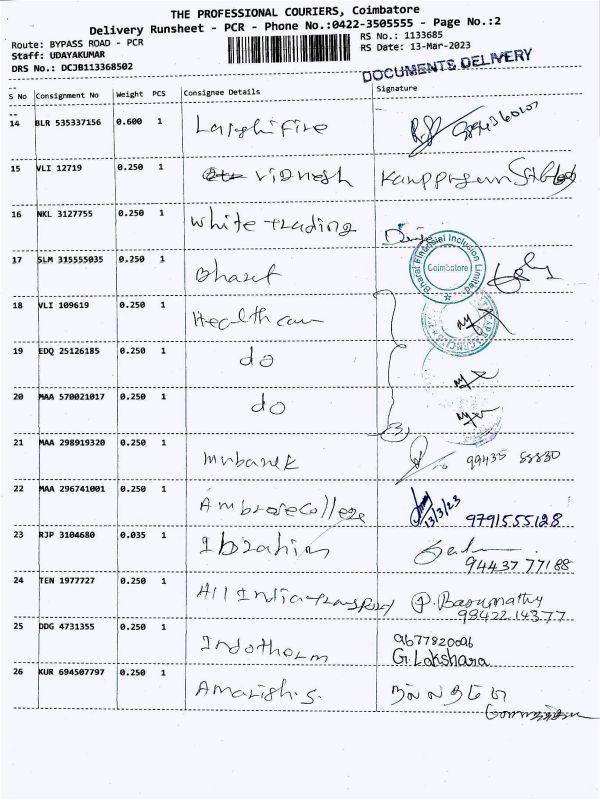 THE PROFESSIONAL COURIERS, Coimbatore
Delivery Runsheet - PCR - Phone No.:0422-3505555 - Page No.:2
Route: BYPASS ROAD - PCR
Staff: UDAYAKUMAR
DRS No.: DCJB113368502
RS No.: 1133685
RS Date: 13-Mar-2023
DOCUMENTS DELIVERY
S No Consignment No Weight PCS Consignee Details Signature
14 BLR 535337156 0.600 1
15 VLI 12719 0.250 1 vignesh
16 NKL 3127755 0.250 1 White trading
17 SLM 315555035 0.250 1 Bharat
Bharat Financial Inclusion Limited
Coimbatore
18 VLI 109619 0.250 1 Health care
19 EDQ 25126185 0.250 1 do
20 MAA 570021017 0.250 1 do
3
21 MAA 298919320 0.250 1 Mubarek 99435 88830
22 MAA 296741001 0.250 1 Ambrose College 13/3/23 9791555128
23 RJP 3104680 0.035 1 Ibrahim
94437 77188
24 TEN 1977727 0.250 1 All India transport P. Banumathy
98422.14377
25 DDG 4731355 0.250 1 Indotherm 9677820096
G. Lakshara
26 KUR 694507797 0.250 1 Amarish.S.